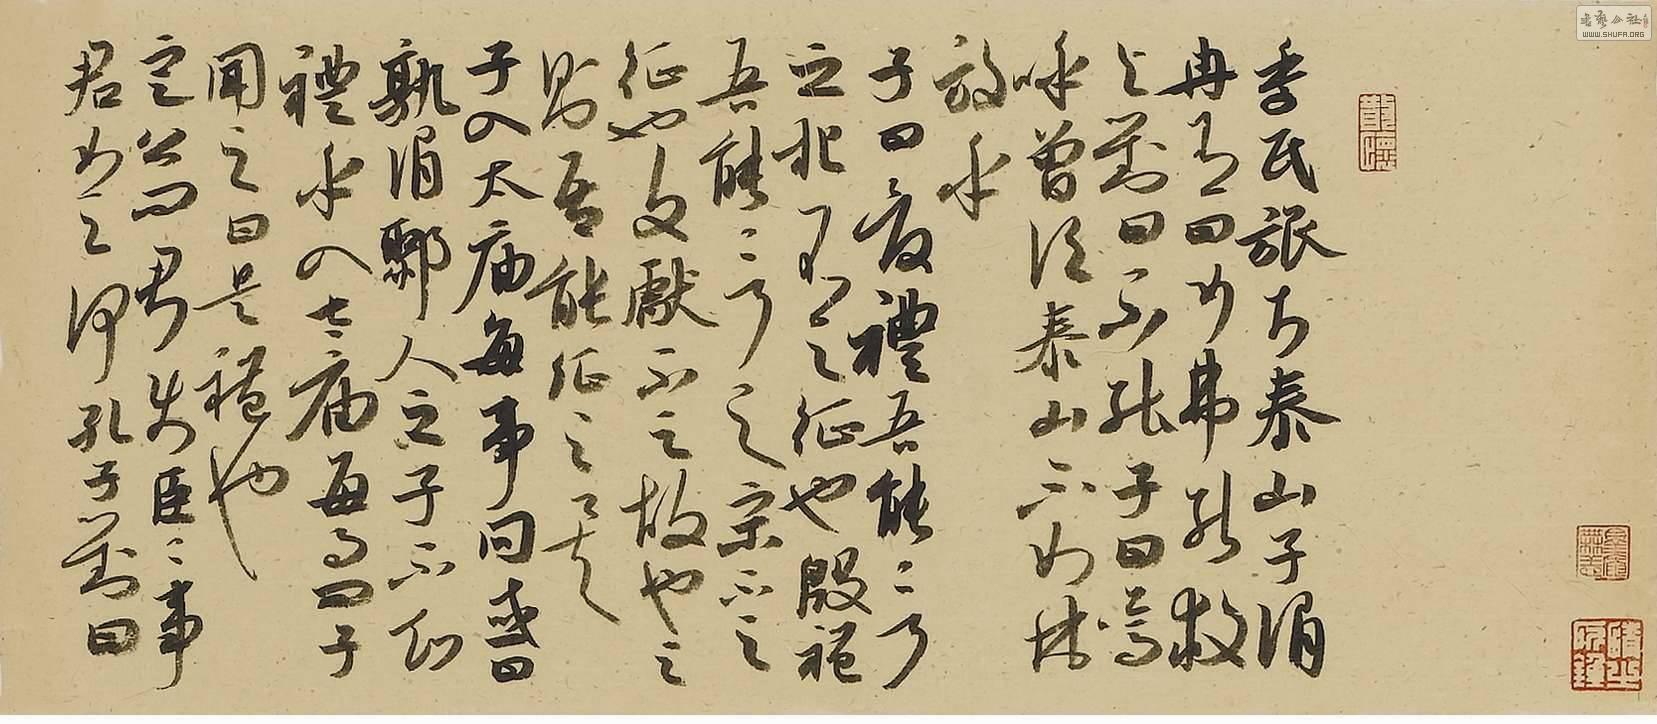 季氏旅於泰山子謂
冉有曰女弗能救
與對曰不能子曰嗚
呼曾謂泰山不如林
放乎
子曰夏禮吾能言
之杞不足征也殷禮
吾能言之宋不足
征也文獻不足故也足
則吾能征之矣
子入太廟每事問或曰
孰謂鄹人之子不知
禮乎入太廟每事問子
聞之曰是禮也
定公問君使臣〻事
君如之何孔子對曰
書藝公社
WWW.SHUFA.ORG